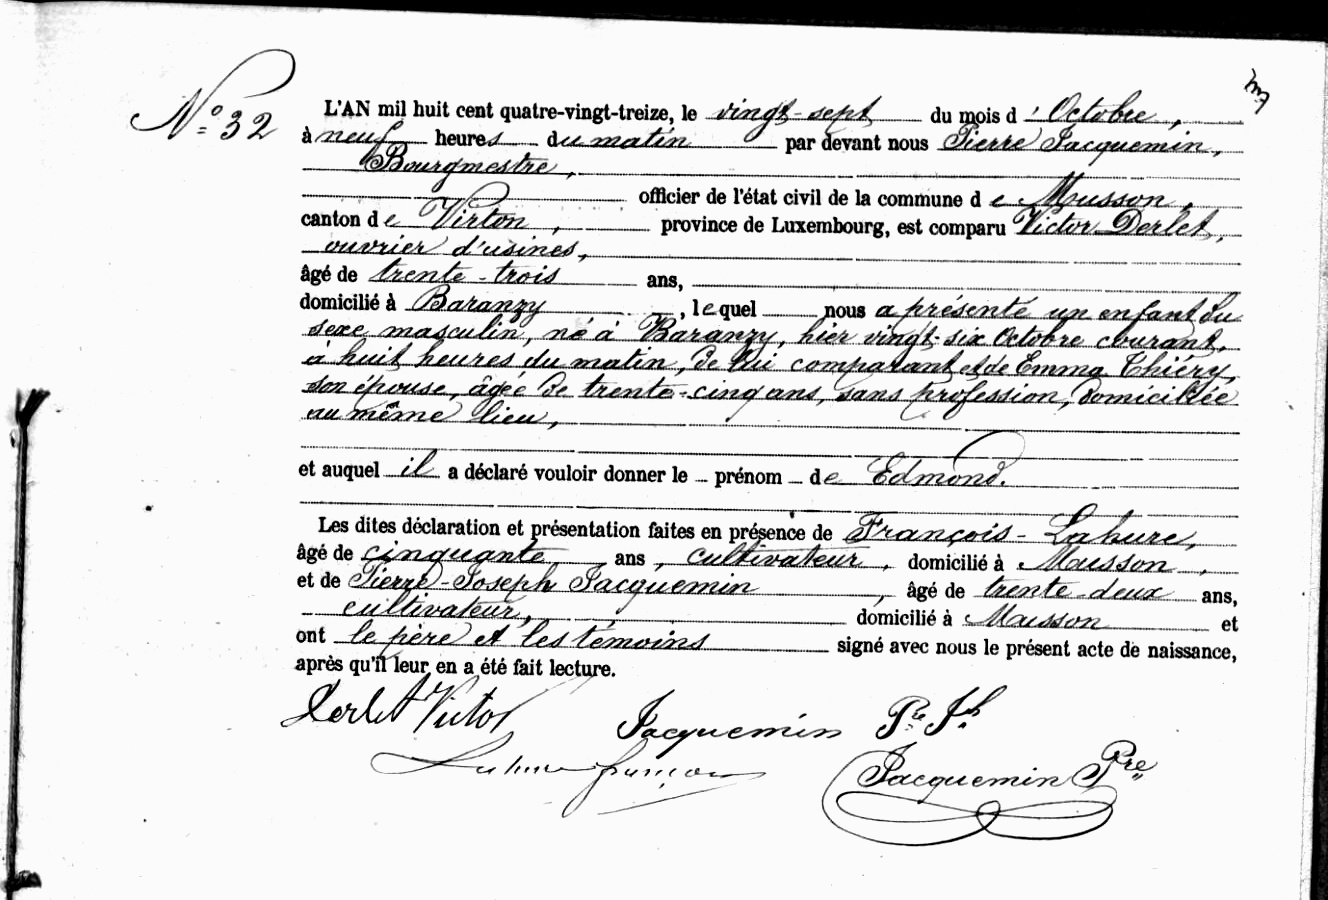 N° 32
L'AN mil huit cent quatre-vingt-treize, le vingt-sept du mois d'Octobre,
à neuf heures du matin par devant nous Pierre Jacquemin,
Bourgmestre,
officier de l'état civil de la commune de Musson,
canton de Virton, province de Luxembourg, est comparu Victor Derlet,
ouvrier d'usines,
âgé de trente-trois ans,
domicilié à Baranzy, lequel nous a présenté un enfant du
sexe masculin, né à Baranzy, hier vingt-six Octobre courant,
à huit heures du matin, de lui comparant et de Emma Thiéry,
son épouse, âgée de trente-cinq ans, sans profession, domiciliée
au même lieu,
et auquel il a déclaré vouloir donner le – prénom – de Edmond.
Les dites déclaration et présentation faites en présence de François-Lahure,
âgé de cinquante ans, cultivateur, domicilié à Musson,
et de Pierre-Joseph Jacquemin, âgé de trente-deux ans,
cultivateur, domicilié à Musson et
ont le père et les témoins signé avec nous le présent acte de naissance,
après qu'il leur en a été fait lecture.
Derlet Victor Jacquemin Pre Jh
Lahure françois Jacquemin Pre